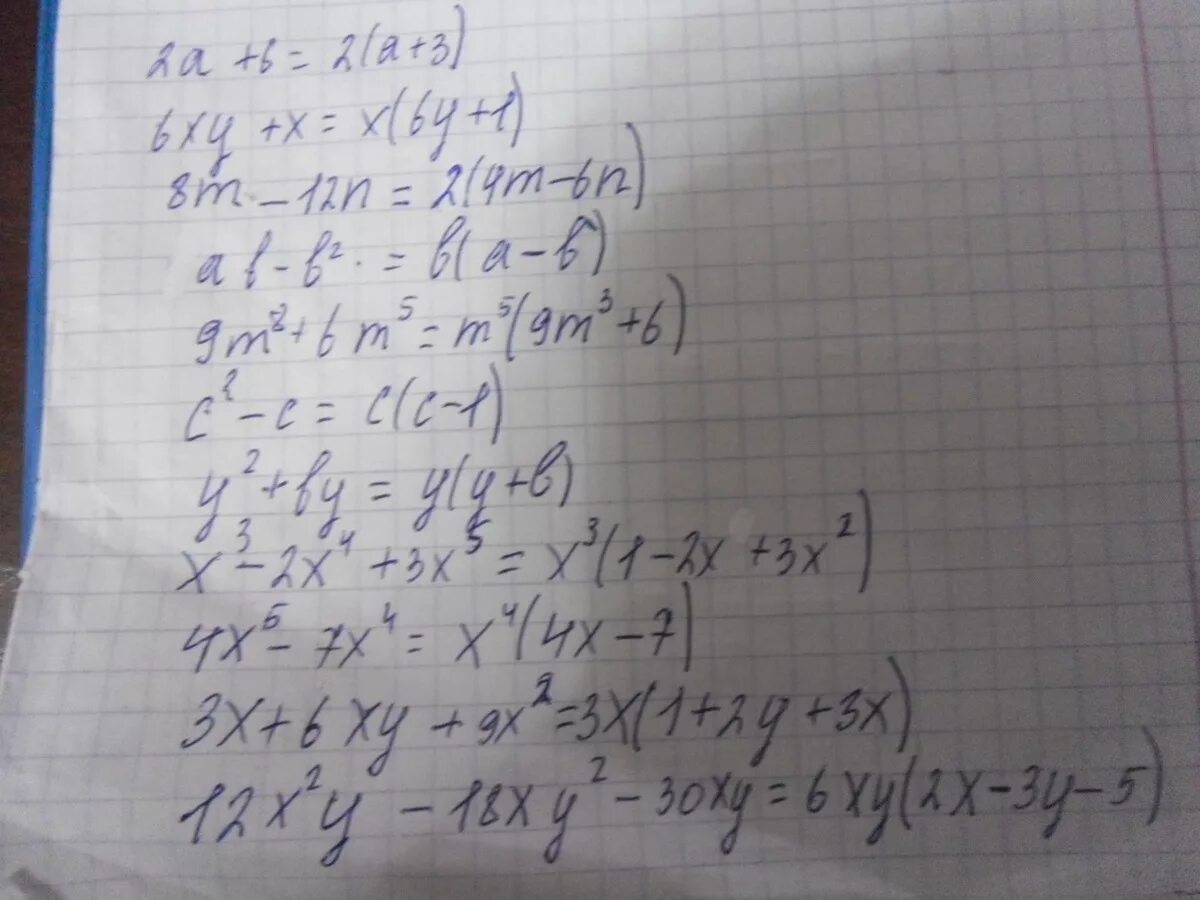 2a + 6 = 2(a+3)
6xy + x = x(6y+1)
8m - 12n = 2(4m-6n)
ab - b² = b(a-b)
9m² + 6m⁵ = m⁵(9m³+6)
c² - c = c(c-1)
y² + by = y(y+b)
x³ - 2x⁴ + 3x⁵ = x³(1-2x+3x²)
4x⁵ - 7x⁴ = x⁴(4x-7)
3x + 6xy + 9x² = 3x(1+2y+3x)
12x²y - 18xy² - 30xy = 6xy(2x-3y-5)